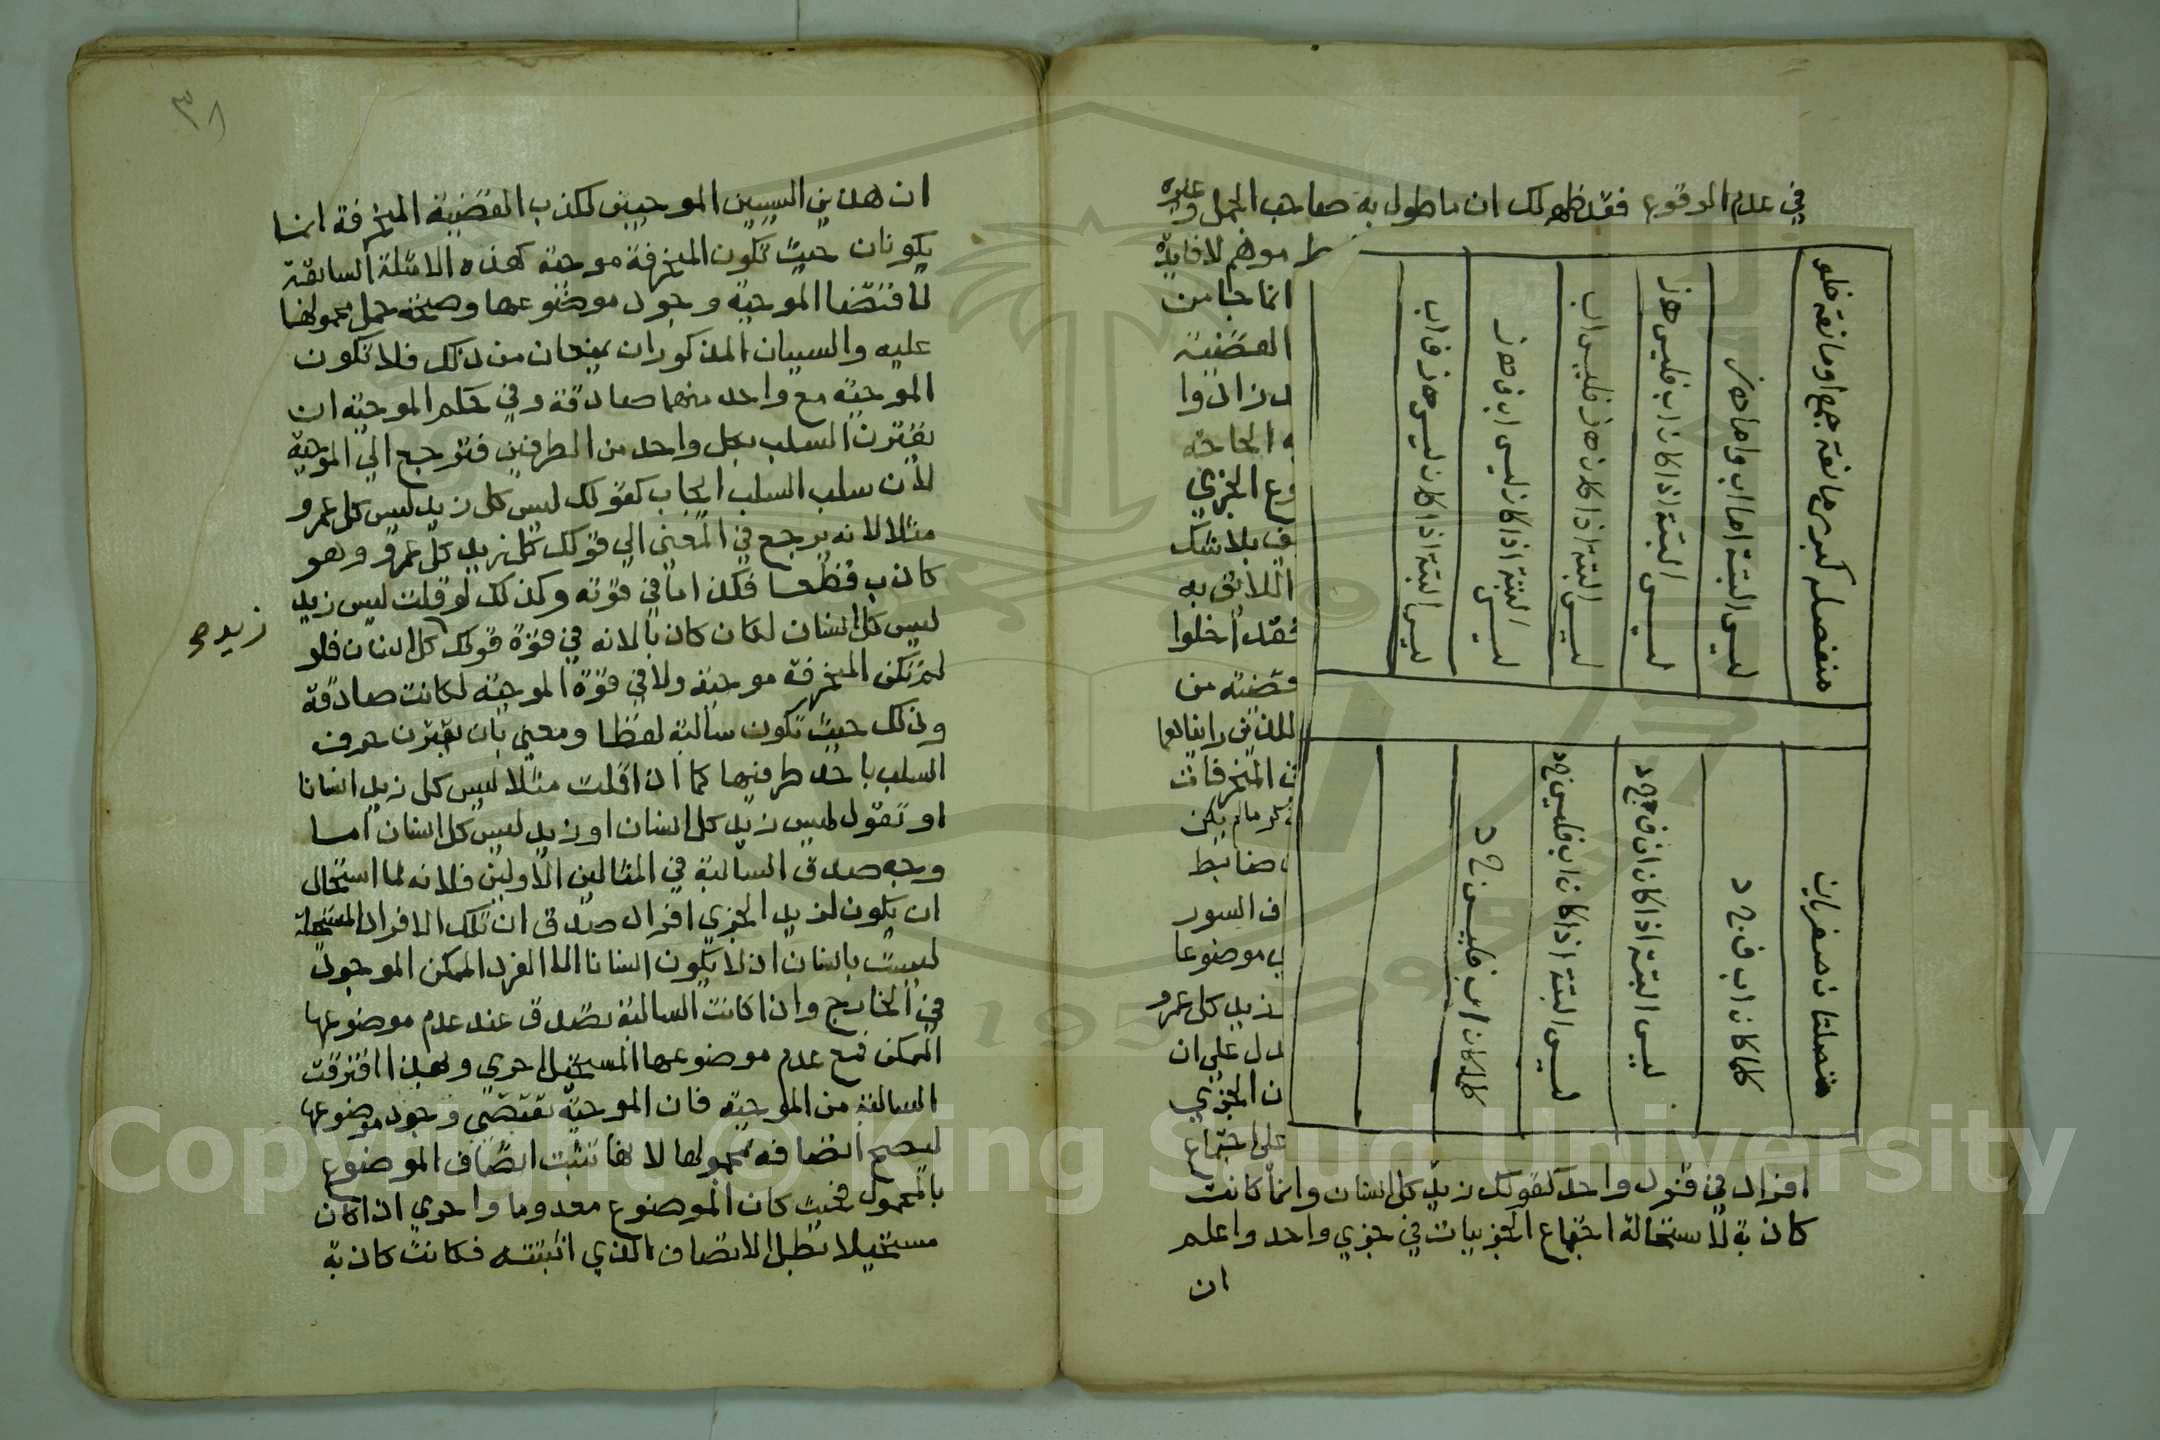 في عدم الوقوع فقد ظهر لك ان ما طول به صاحب الجمل وغيره
موهم لا فايدة
انما جا من
القضية
الحاجة
وع الجزي
بلا شك
اللائق به
فقد اخلوا
قضية من
المنحرفات
مالم يكن
ضابط
ف السور
موضوعا
زيد كل عمرو
دل علي ان
ن الجزي
علي اجتماع
منفصلة كبري مانعة جمع او مانعة خلو
ليس البتة اما اب واما هز
ليس البتة اذا كان اب فليس هز
ليس البتة اذا كان هز فليس اب
ليس البتة اذا كان ليس اب فهز
ليس البتة اذا كان ليس هز فاب
متصلتان صغريان
كلما كان اب فجد
ليس البتة اذا كان اب فجد
ليس البتة اذا كان اب فليس جد
كلما كان اب فليس جد
افراد في قول واحد كقولك زيد كل انسان وانما كانت
كاذبة لاستحالة اجتماع الجزييات في جزي واحد واعلم
ان
٣٨
ان هذين السببين الموجبين لكذب القضية المنحرفة انما
يكونان حيث تكون المنحرفة موجبة كهذه الامثلة السابقة
لاقتضا الموجبة وجود موضوعها وصحة حمل محمولها
عليه والسببان المذكوران يمنعان من ذلك فلا تكون
الموجبة مع واحد منهما صادقة وفي حكم الموجبة ان
يقترن السلب بكل واحد من الطرفين فترجع الي الموجبة
لان سلب السلب ايجاب كقولك ليس كل زيد ليس كل عمرو
مثلا لانه يرجع في المعني الي قولك كل زيد كل عمرو وهو
كاذب قطعا فكذا ما في قوته وكذلك لو قلت ليس زيد
ليس كل انسان لكان كاذبا لانه في قوة قولك كل انسان فلو
زيد صح
لم تكن المنحرفة موجبة ولا في قوة الموجبة لكانت صادقة
وذلك حيث تكون سالبة لفظا ومعني بان يقترن حرف
السلب باحد طرفيها كما اذا قلت مثلا ليس كل زيد انسانا
او تقول ليس زيد كل انسان او زيد ليس كل انسان اما
وجه صدق السالبة في المثالين الاولين فلانه لما استحال
ان يكون لزيد الجزي افراد صدق ان تلك الافراد المستحيلة
ليست بانسان اذ لا يكون انسانا الا الفرد الممكن الموجود
في الخارج واذا كانت السالبة تصدق عند عدم موضوعها
الممكن فمع عدم موضوعها المستحيل احري وبهذا افترقت
السالبة من الموجبة فان الموجبة تقتضي وجود موضوعها
ليصح اتصافه بمحمولها لانها تثبت اتصاف الموضوع
بالمحمول فحيث كان الموضوع معدوما واحري اذا كان
مستحيلا بطل الاتصاف الذي اثبتته فكانت كاذبة
Copyright © King Saud University